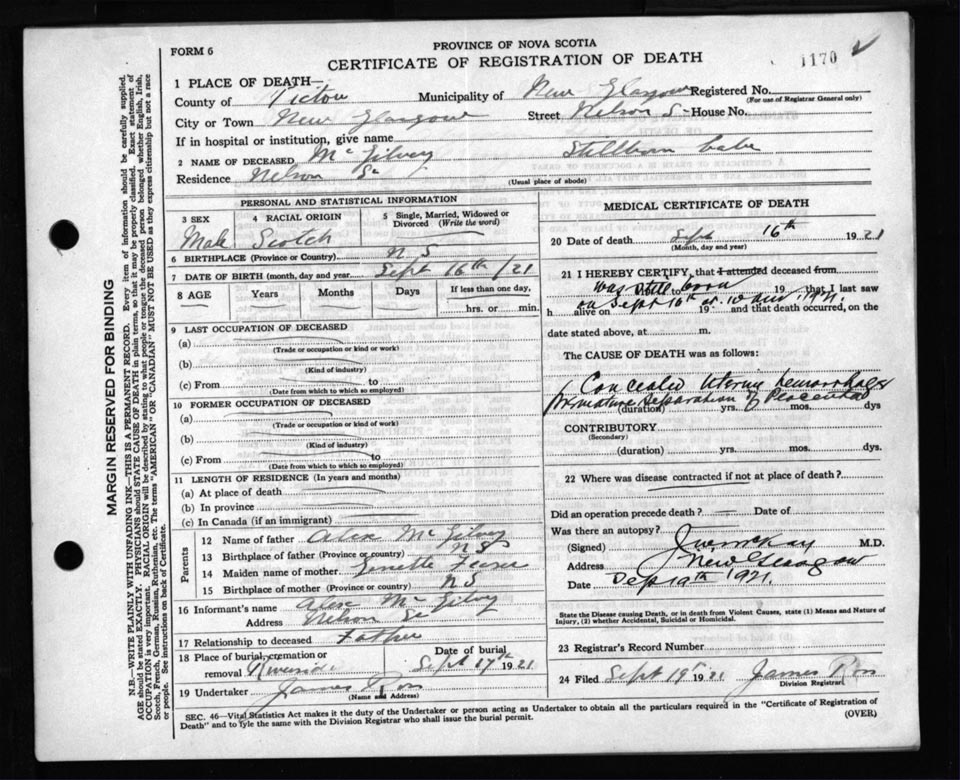 FORM 6
PROVINCE OF NOVA SCOTIA
CERTIFICATE OF REGISTRATION OF DEATH
1170
1 PLACE OF DEATH—
County of Pictou Municipality of New Glasgow Registered No.
(For use of Registrar General only)
City or Town New Glasgow Street Nelson St House No.
If in hospital or institution, give name
2 NAME OF DECEASED McGilvery Stillborn babe
Residence Nelson St
(Usual place of abode)
PERSONAL AND STATISTICAL INFORMATION
3 SEX 4 RACIAL ORIGIN 5 Single, Married, Widowed or Divorced (Write the word)
Male Scotch
6 BIRTHPLACE (Province or Country) N S
7 DATE OF BIRTH (month, day and year) Sept 16th /21
8 AGE Years Months Days If less than one day,
hrs. or min.
9 LAST OCCUPATION OF DECEASED
(a)
(Trade or occupation or kind or work)
(b)
(Kind of industry)
(c) From to
(Date from which to which so employed)
10 FORMER OCCUPATION OF DECEASED
(a)
(Trade or occupation or kind of work)
(b)
(Kind of industry)
(c) From to
(Date from which to which so employed)
11 LENGTH OF RESIDENCE (In years and months)
(a) At place of death
(b) In province
(c) In Canada (if an immigrant)
Parents
12 Name of father Alex McGilvry
13 Birthplace of father (Province or country) N S
14 Maiden name of mother
15 Birthplace of mother (Province or country) N S
16 Informant's name Alex McGilvry
Address Nelson St
17 Relationship to deceased Father
18 Place of burial, cremation or removal Riverside Date of burial Sept 17th 1921
19 Undertaker James Ross
(Name and Address)
MEDICAL CERTIFICATE OF DEATH
20 Date of death Sept 16th 1921
(Month, day and year)
21 I HEREBY CERTIFY, that I attended deceased from
was still born to 19 that I last saw
on Sept 16th at 10 am 1921.
h alive on 19 and that death occurred, on the
date stated above, at m.
The CAUSE OF DEATH was as follows:
Concealed Uterine hemorrhage
premature separation of Placenta
(duration) yrs. mos. dys
CONTRIBUTORY
(Secondary)
(duration) yrs. mos. dys.
22 Where was disease contracted if not at place of death?
Did an operation precede death? — Date of
Was there an autopsy?
(Signed) J W McKay M.D.
Address New Glasgow
Date Sep 19th 1921.
State the Disease causing Death, or in death from Violent Causes, state (1) Means and Nature of Injury, (2) whether Accidental, Suicidal or Homicidal.
23 Registrar's Record Number
24 Filed Sept 19th 1921 James Ross
Division Registrar
SEC. 46—Vital Statistics Act makes it the duty of the Undertaker or person acting as Undertaker to obtain all the particulars required in the "Certificate of Registration of Death" and to file the same with the Division Registrar who shall issue the burial permit.
(OVER)
MARGIN RESERVED FOR BINDING
N.B.—WRITE PLAINLY WITH UNFADING INK—THIS IS A PERMANENT RECORD. Every item of information should be carefully supplied. AGE should be stated EXACTLY. PHYSICIANS should STATE CAUSE OF DEATH in plain terms, so that it may be properly classified. Exact statement of OCCUPATION is very important. RACIAL ORIGIN will be described by stating to what people or tongue the deceased person belonged whether English, Irish, Scotch, French, German, Russian, Ruthenian, etc. The terms "AMERICAN" OR "CANADIAN" MUST NOT BE USED as they express citizenship but not a race or people. See instructions on back of Certificate.